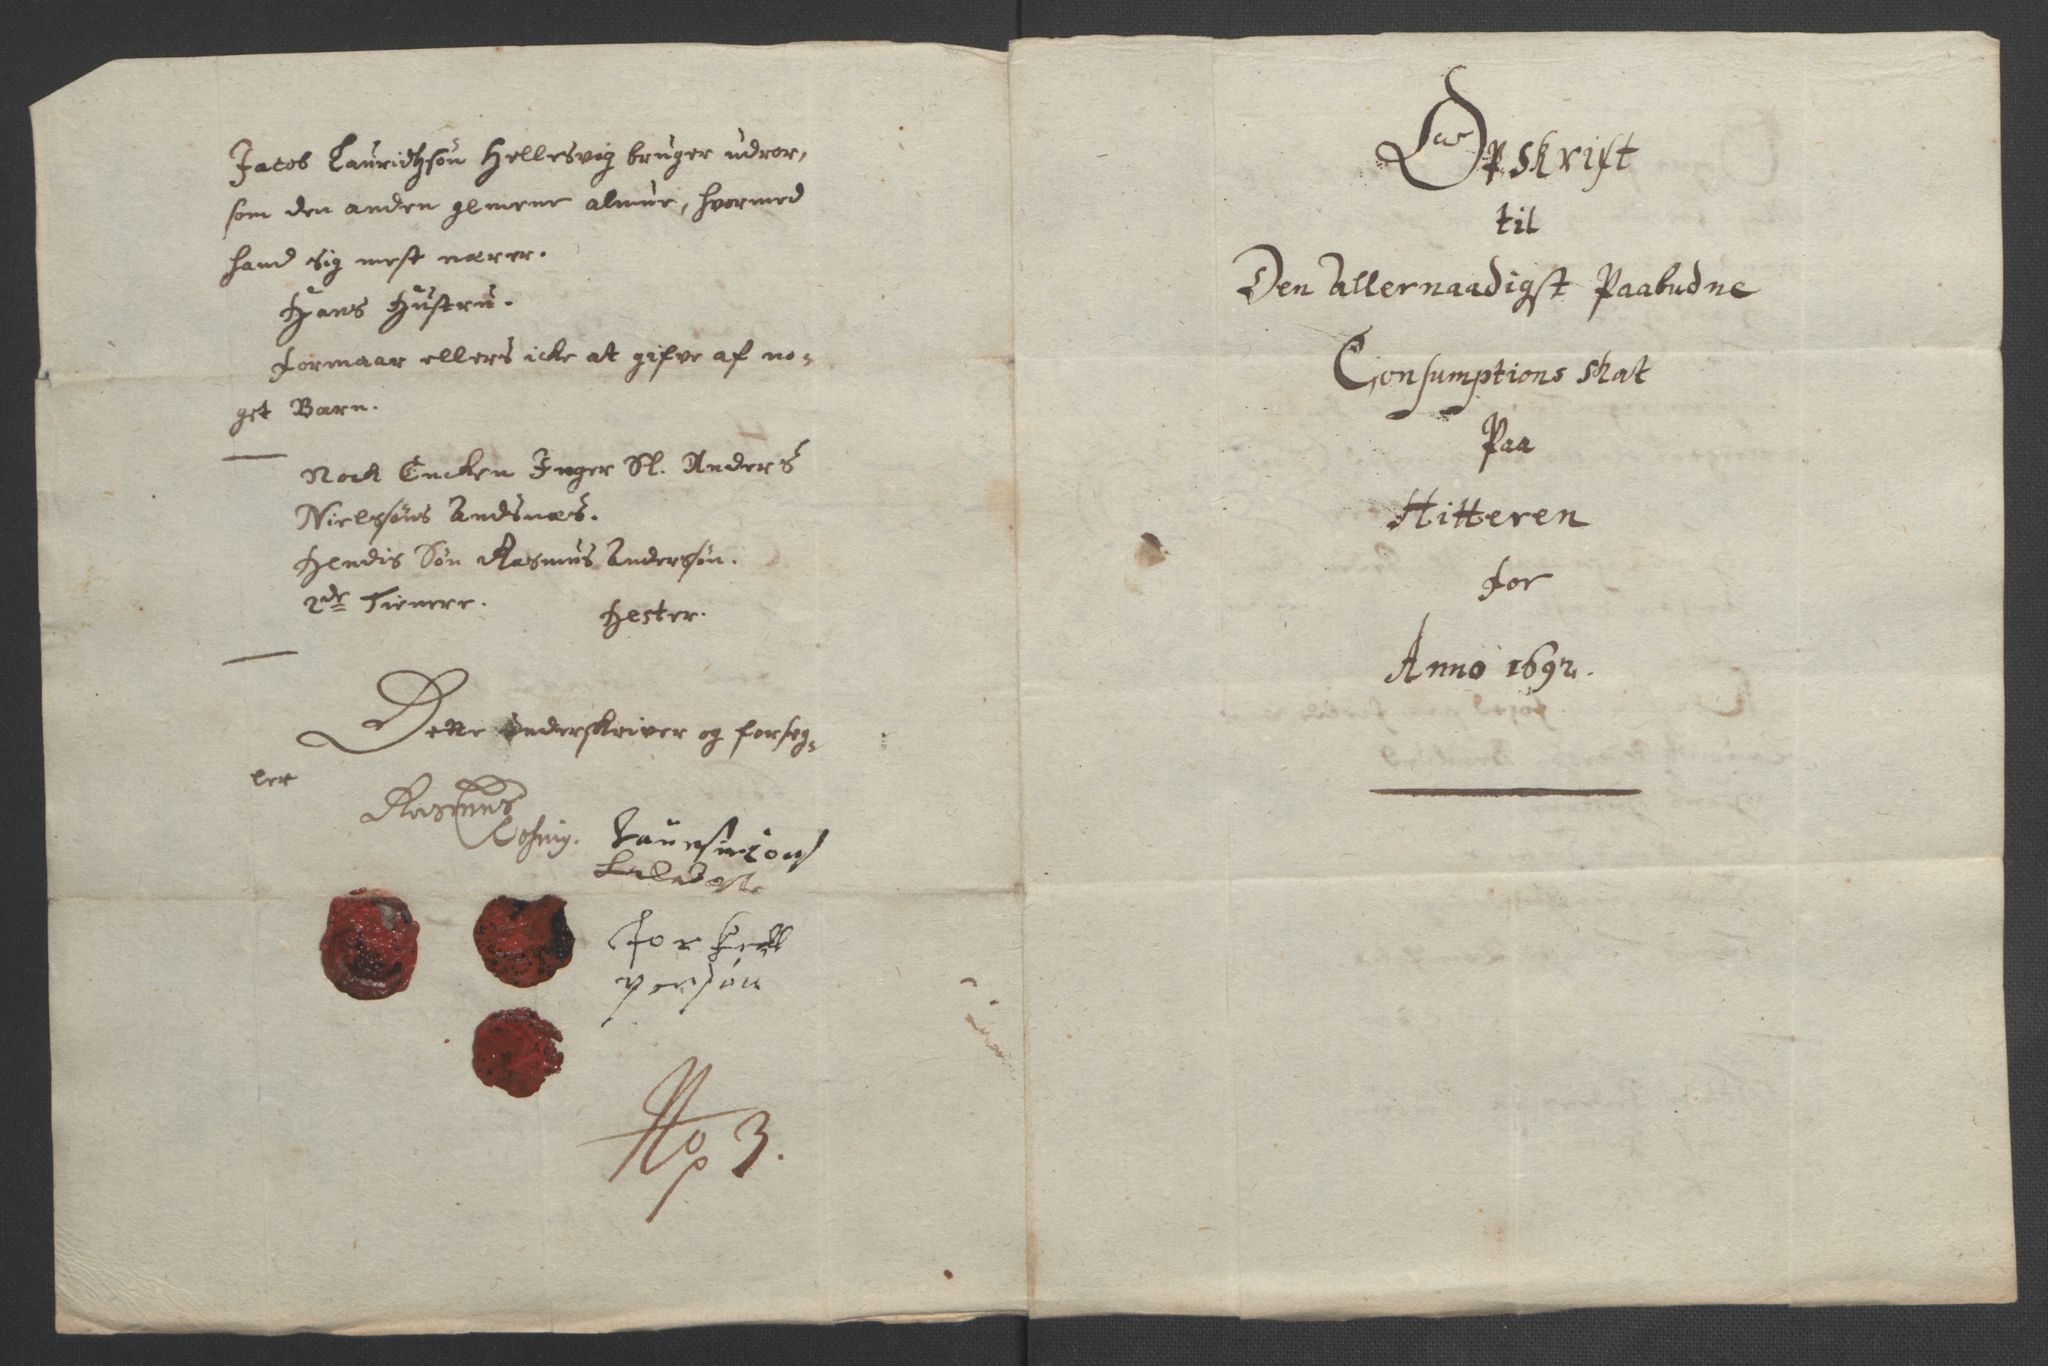 Jacob Lauridtzsøn Hellesvig bruger udror,
som den anden gemene almue, hvormed
hand sig mest nærer.
Hans Hustru.
Formaar ellers icke at gifve af no-
get Barn.
Nock Encken Inger Sl. Anders
Nielsøns Andsnæs.
Hendis Søn Rasmus Andersøn.
2de Tienere. Hester.
Dette underskriver og forseg-
ler
Rasmus
for
persøn
No 3.
Opskrift
til
Den Allernaadigst Paabudne
Consumptions Skat
Paa
Hitteren
for
Anno 1692.